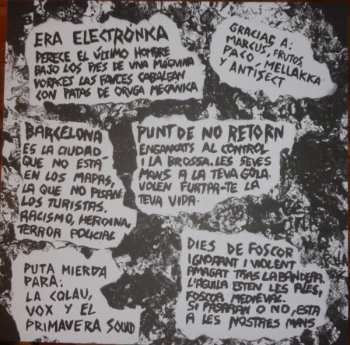 ERA ELECTRÓNKA
PERECE EL ÚLTIMO HOMBRE
BAJO LOS PIES DE UNA MÁQUINA
VORACES LAS FAUCES CABALGAN
CON PATAS DE ORUGA MECANICA
GRACIAS A:
MARCUS, FRUTOS
PACO, MELLAKKA
Y ANTISECT
BARCELONA
ES LA CIUDAD
QUE NO ESTÁ
EN LOS MAPAS,
LA QUE NO PISAN
LOS TURISTAS.
RACISMO, HEROINA,
TERROR POLICIAL
PUNT DE NO RETORN
ENGANXATS AL CONTROL
I LA BROSSA. LES SEVES
MANS A LA TEVA GOLA
VOLEN FURTAR-TE LA
TEVA VIDA
PUTA MIERDA
PARA:
LA COLAU,
VOX Y EL
PRIMAVERA SOUND
DIES DE FOSCOR
IGNORANT I VIOLENT
AMAGAT TRAS LA BANDERA
L'ÀGUILA ESTEN LES ALES,
FOSCOR MEDIEVAL.
SI PASARAN O NO, ESTA
A LES NOSTRES MANS